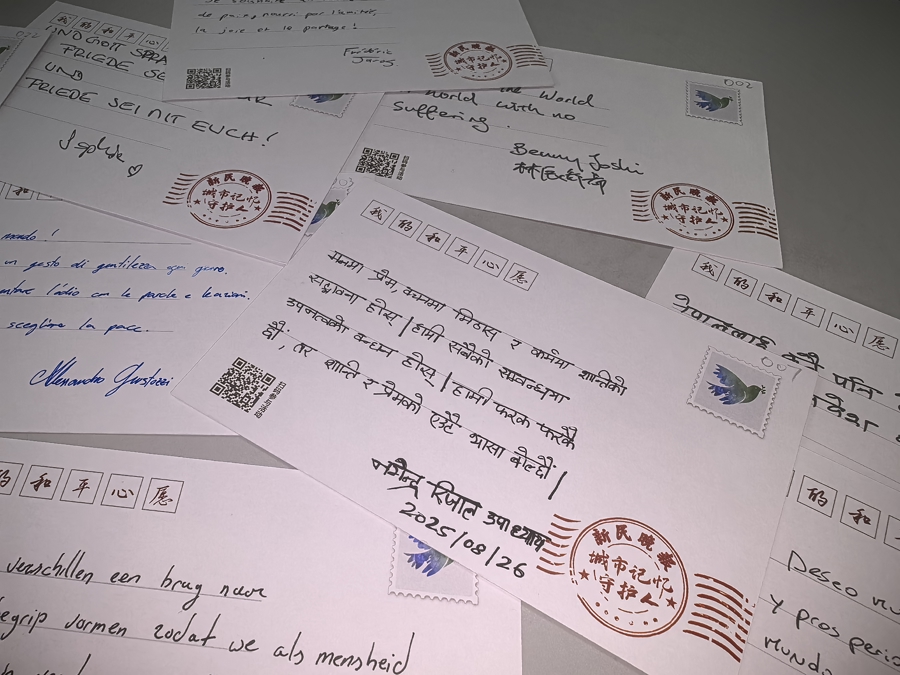 de paix, nourri par l'amitié,
la joie et le partage!
Frédéric
新民晚报
城市记忆
守护人
022
我的和平心愿
UND GOTT SPRA
FRIEDE SE
UND
FRIEDE SEI MIT EUCH!
Sophie
新民晚报
城市记忆
守护人
002
the World
World with no
suffering.
Benny Joshi
新民晚报
城市记忆
守护人
mondo!
un gesto di gentilezza ogni giorno.
l'odio con le parole e le azioni.
scegliere la pace.
Alessandro
003
我的和平心愿
मनमा प्रेम, वचनमा मिठास र कर्ममा शान्तिको
सद्भावना होस् | हामी सबैको सम्बन्धमा
अपनत्वको बन्धन होस् | हामी फरक फरकै
छौं, तर शान्ति र प्रेमको एउटै भाषा बोल्छौं |
नगेन्द्र रिजाल उपाध्याय
2025/08/26
007
新民晚报
城市记忆
守护人
我的和平心愿
पनि
的和平心愿
verschillen een brug naar
begrip vormen zodat we als mensheid
的和
Deseo
y prosperi
mundo